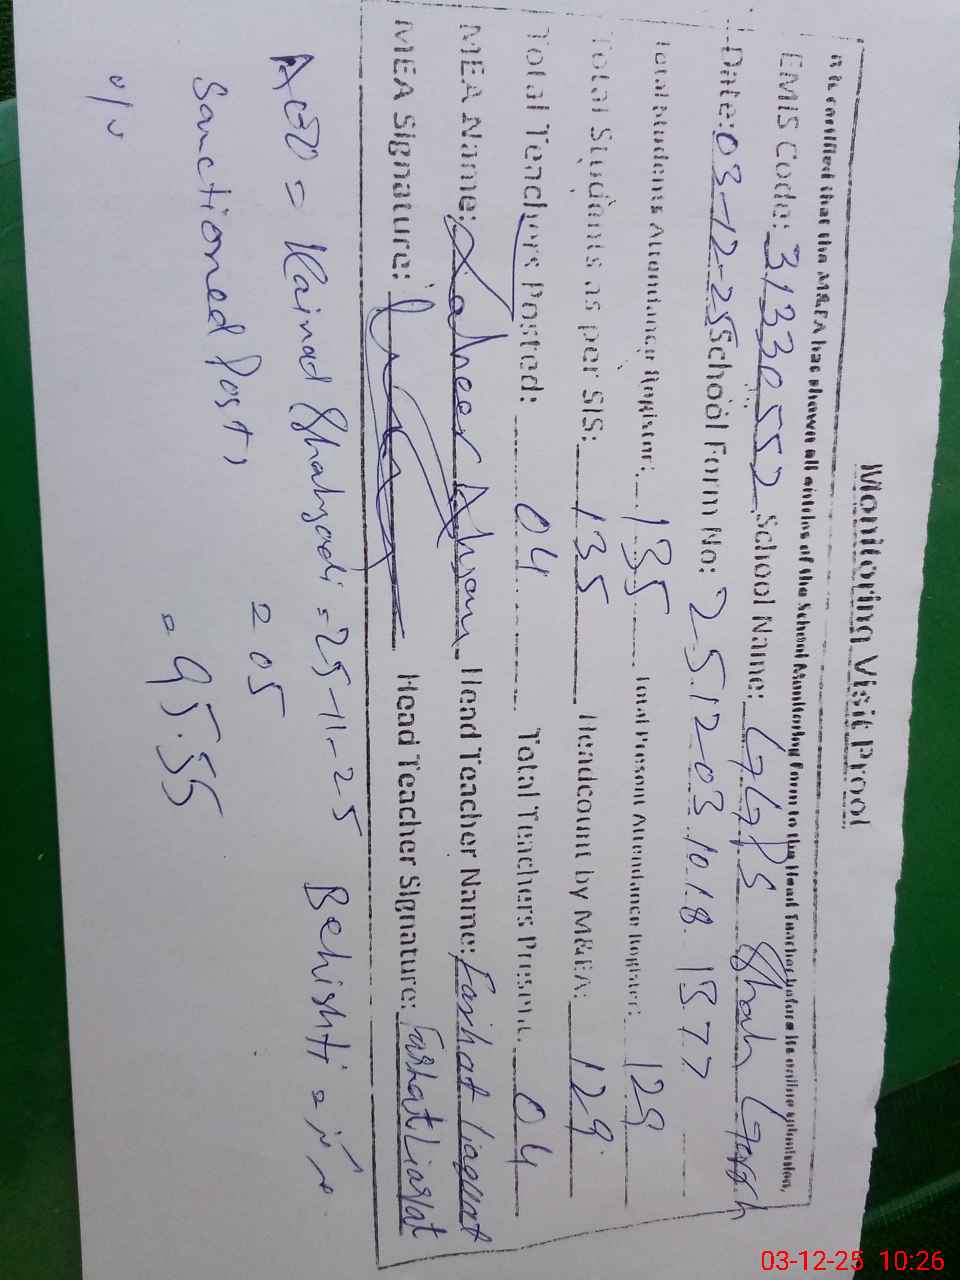 Monitoring Visit Proof
It is certified that the M&EA has shown all entries of the School Monitoring Form to the Head Teacher before its online submission.
EMIS Code: 31330552 School Name: GGPS Shah Garh
Date: 03-12-25 School Form No: 2512-03.1018 1377
Total Students Attendance Register: 135 Total Present Attendance Register: 129
Total Students as per SIS: 135 Headcount by M&EA: 129
Total Teachers Posted: 04 Total Teachers Present: 04
MEA Name: Head Teacher Name: Farhat Liaquat
MEA Signature: Head Teacher Signature: Farhat Liaqat
AEO = Shahzadi = 25-11-25 Behishti =
Sanctioned Post, = 05
% = 95.55
03-12-25 10:26